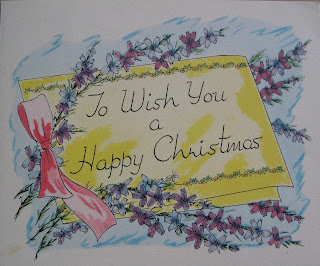 To Wish You
a
Happy Christmas